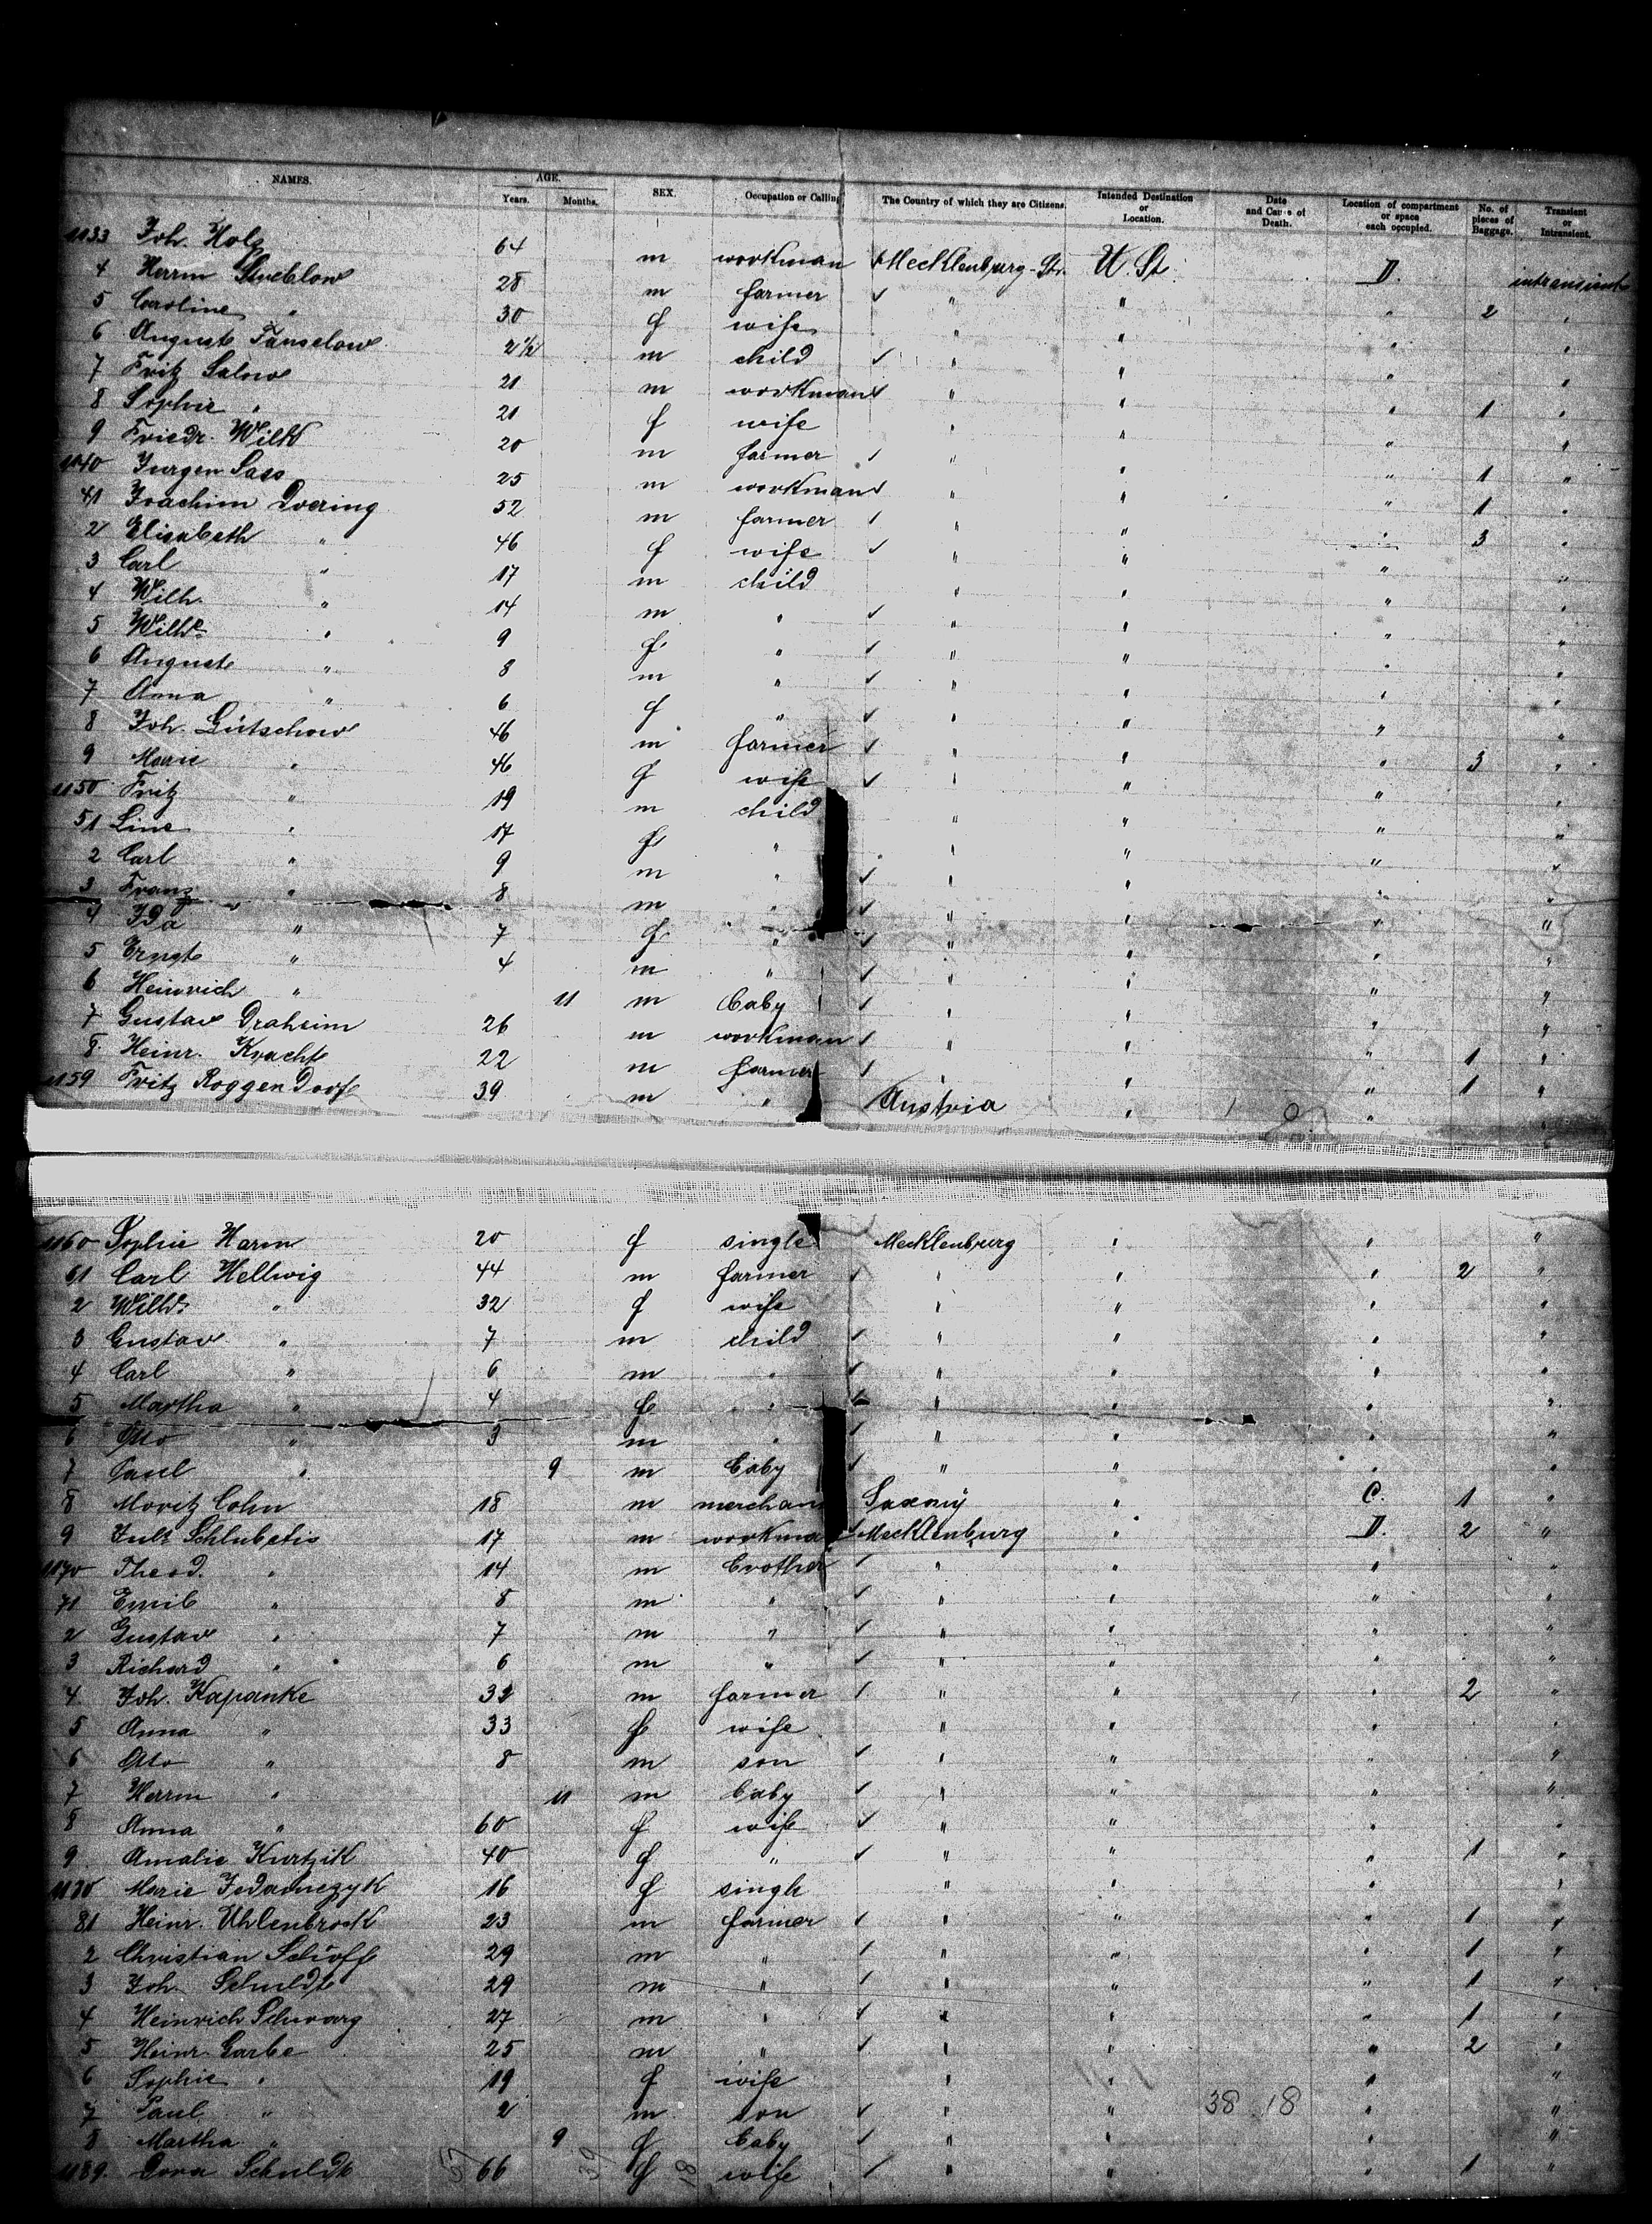 NAMES. AGE. Years. Months. SEX. Occupation or Calling The Country of which they are Citizens. Intended Destination or Location. Date and Cause of Death. Location of compartment or space each occupied. No. of pieces of Baggage. Transient or Intransient.
1133 Joh. Holz 64 m workman Mecklenburg-Str. U. St. D. intransient
4 Herrm 28 m farmer ✓ " " " 2 "
5 Caroline " 30 f wife " " " "
6 Auguste Fanselow 2 1/2 m child ✓ " " " "
7 Fritz Salow 21 m workman ✓ " " " 1 "
8 Sophie " 21 f wife " " " "
9 Friedr. Wilk 20 m farmer ✓ " " " 1 "
1140 Jurgen Sass 25 m workman ✓ " " " 1 "
41 Joachim Doering 52 m farmer ✓ " " " 3 "
2 Elisabeth " 46 f wife ✓ " " " "
3 Carl " 17 m child " " " "
4 Wilh. " 14 m " ✓ " " " "
5 Wilhe " 9 f " ✓ " " " "
6 Auguste " 8 m " ✓ " " " "
7 Anna " 6 f " ✓ " " " "
8 Joh. Gütschow 46 m farmer ✓ " " " 3 "
9 Marie " 46 f wife ✓ " " " "
1150 Fritz " 19 m child " " " "
51 Line " 17 f " " " " "
2 Carl " 9 m " ✓ " " " "
3 Franz " 8 m " ✓ " " " "
4 Ida " 7 f " ✓ " " " "
5 Ernst " 4 m " ✓ " " " "
6 Heinrich " 11 m baby ✓ " " " "
7 Gustav Draheim 26 m workman ✓ " " " 1 "
8 Heinr. Kracht 22 m farmer ✓ " " " 1 "
1159 Fritz Roggendorf 39 m " Austria " "
1160 Sophie Harm 20 f single Mecklenburg " " "
61 Carl Hellwig 44 m farmer ✓ " " " 2 "
2 " 32 f wife " " " "
3 Gustav " 7 m child ✓ " " " "
4 Carl " 6 m " ✓ " " " "
5 Martha " 4 f " " " " "
6 Otto " 3 m " ✓ " " " "
7 Paul " 9 m baby ✓ " " " "
8 Moritz Cohn 18 m merchan Saxony " C. 1 "
9 Juls Schlubatis 17 m workma ✓ Mecklenburg " D. 2 "
1170 Theod. " 14 m brother ✓ " " " "
71 Emil " 8 m " ✓ " " " "
2 Gustav " 7 m " ✓ " " " "
3 Richard " 6 m " ✓ " " " "
4 Joh. Kapanke 32 m farmer ✓ " " " 2 "
5 Anna " 33 f wife " " " "
6 Otto " 8 m son ✓ " " " "
7 Herrm " 11 m baby ✓ " " " "
8 Anna " 60 f wife ✓ " " " "
9 Amalie Kurtzik 40 f " ✓ " " " 1 "
1180 Marie 16 f single " " " "
81 Heinr. Uhlenbrock 23 m farmer ✓ " " " 1 "
2 Christian 29 m " ✓ " " " 1 "
3 Joh. Schuldt 29 m " ✓ " " " 1 "
4 Heinrich Schwarz 27 m " ✓ " " " 1 "
5 Heinr. Garbe 25 m " ✓ " " " 2 "
6 Sophie " 19 f wife " " " "
7 Paul " 2 m son ✓ " " 38 18 " "
8 Martha " 9 f baby ✓ " " " "
1189. Dora Schuldt 66 f wife ✓ " " " 1 "